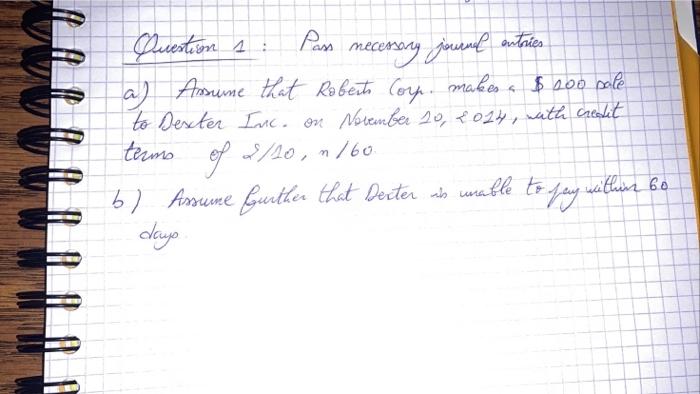 Question 1 : Pass necessary journal entries
a) Assume that Roberts Corp. makes a $ 100 sale
to Dexter Inc. on November 10, 2014, with credit
terms of 2/10, n/60.
b) Assume further that Dexter is unable to pay within 60
days.